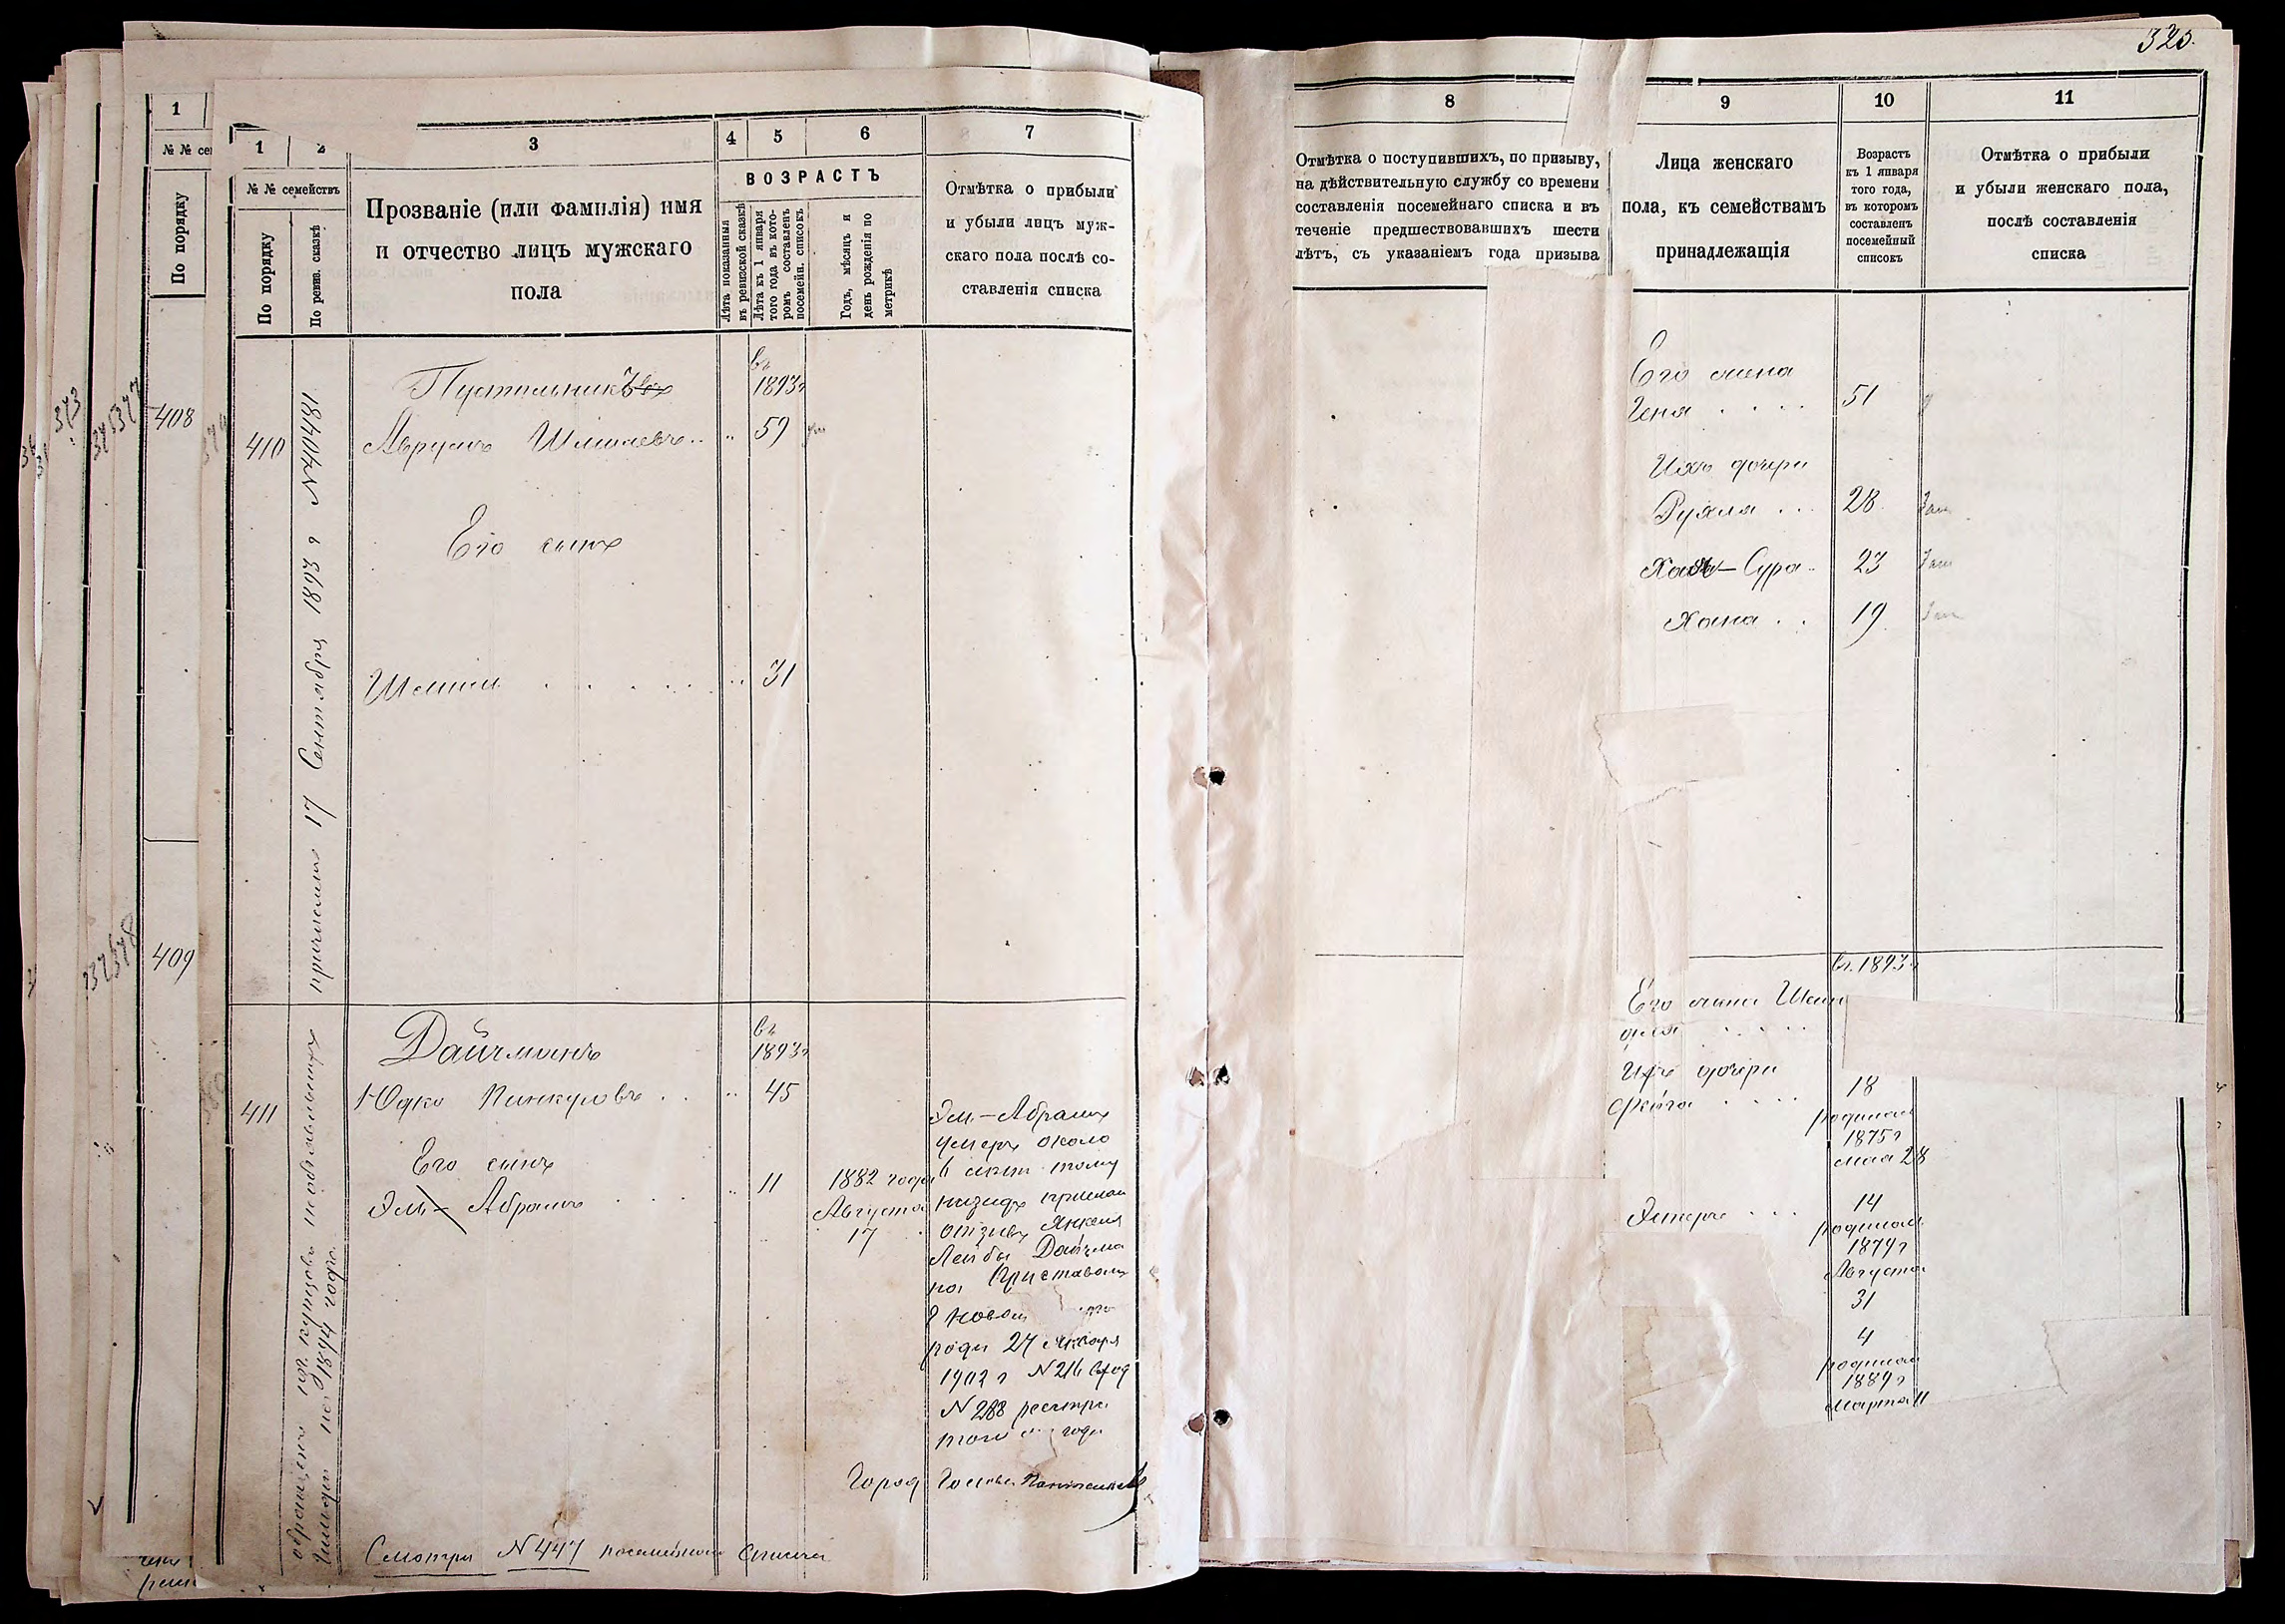 325.
1
№№ се
По порядку
408
409
373
377
378
1
2
3
4
5
6
7
№ № семействъ
По порядку
По ревиз. сказкѣ
Прозваніе (или фамилія) имя
и отчество лицъ мужскаго
пола
ВОЗРАСТЪ
Лѣта показанныя
въ ревизской сказкѣ
Лѣта къ 1 января
того года въ кото-
ромъ составленъ
посемейн. списокъ
Годъ, мѣсяцъ и
день рожденія по
метрикѣ
Отмѣтка о прибыли
и убыли лицъ муж-
скаго пола послѣ со-
ставленія списка
410
причислено 17 Сентября 1893 г №10481
Пустыльник
въ
1893г
Аврумъ Шмилевъ
59
Его сынъ
Шмили
31
411
обращенъ изъ купцовъ
на 1894 годъ
Дайчманъ
въ
1893г
Юдко Пинкусовъ
45
Его сынъ
Эль-Абрамъ
11
1882 года
Августа
17
Эль-Абрамъ
умеръ около
6 лѣтъ тому
назадъ
отзывъ Янкеля
Лейбы Дайчма
на Приставомъ
27 Января
1902 г №216 вход
№288 реестра
того года
Город
Смотри №447 посемейнаго списка
8
9
10
11
Отмѣтка о поступившихъ, по призыву,
на дѣйствительную службу со времени
составленія посемейнаго списка и въ
теченіе предшествовавшихъ шести
лѣтъ, съ указаніемъ года призыва
Лица женскаго
пола, къ семействамъ
принадлежащія
Возрастъ
къ 1 января
того года,
въ которомъ
составленъ
посемейный
списокъ
Отмѣтка о прибыли
и убыли женскаго пола,
послѣ составленія
списка
Его жена
Геня
51
Ихъ дочери
Рухля
28
Зам
Хая-Сура
23
Зам
Хана
19
Зам
въ 1893г
Его жена Шейн
для
Ихъ дочери
18
родилась
1875г
мая 28
Эстеръ
14
родилась
1879г
Августа
31
4
родилась
1889г
Марта 11